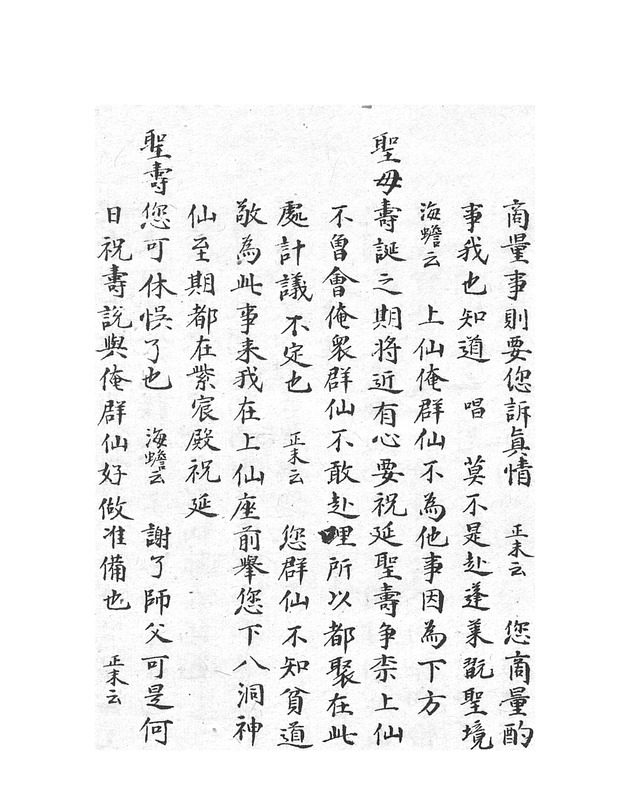 商量事則要您訴真情　正末云　您商量酌
事我也知道　唱　莫不是赴蓬萊翫聖境
海蟾云　上仙俺群仙不為他事因為下方
聖母壽誕之期將近有心要祝延聖壽争柰上仙
不曾會俺衆群仙不敢赴哩所以都聚在此
處計議不定也　正末云　您群仙不知貧道
敬為此事来我在上仙座前舉您下八洞神
仙至期都在紫宸殿祝延
聖壽您可休悞了也　海蟾云　謝了師父可是何
日祝壽説與俺群仙好做准備也　正末云